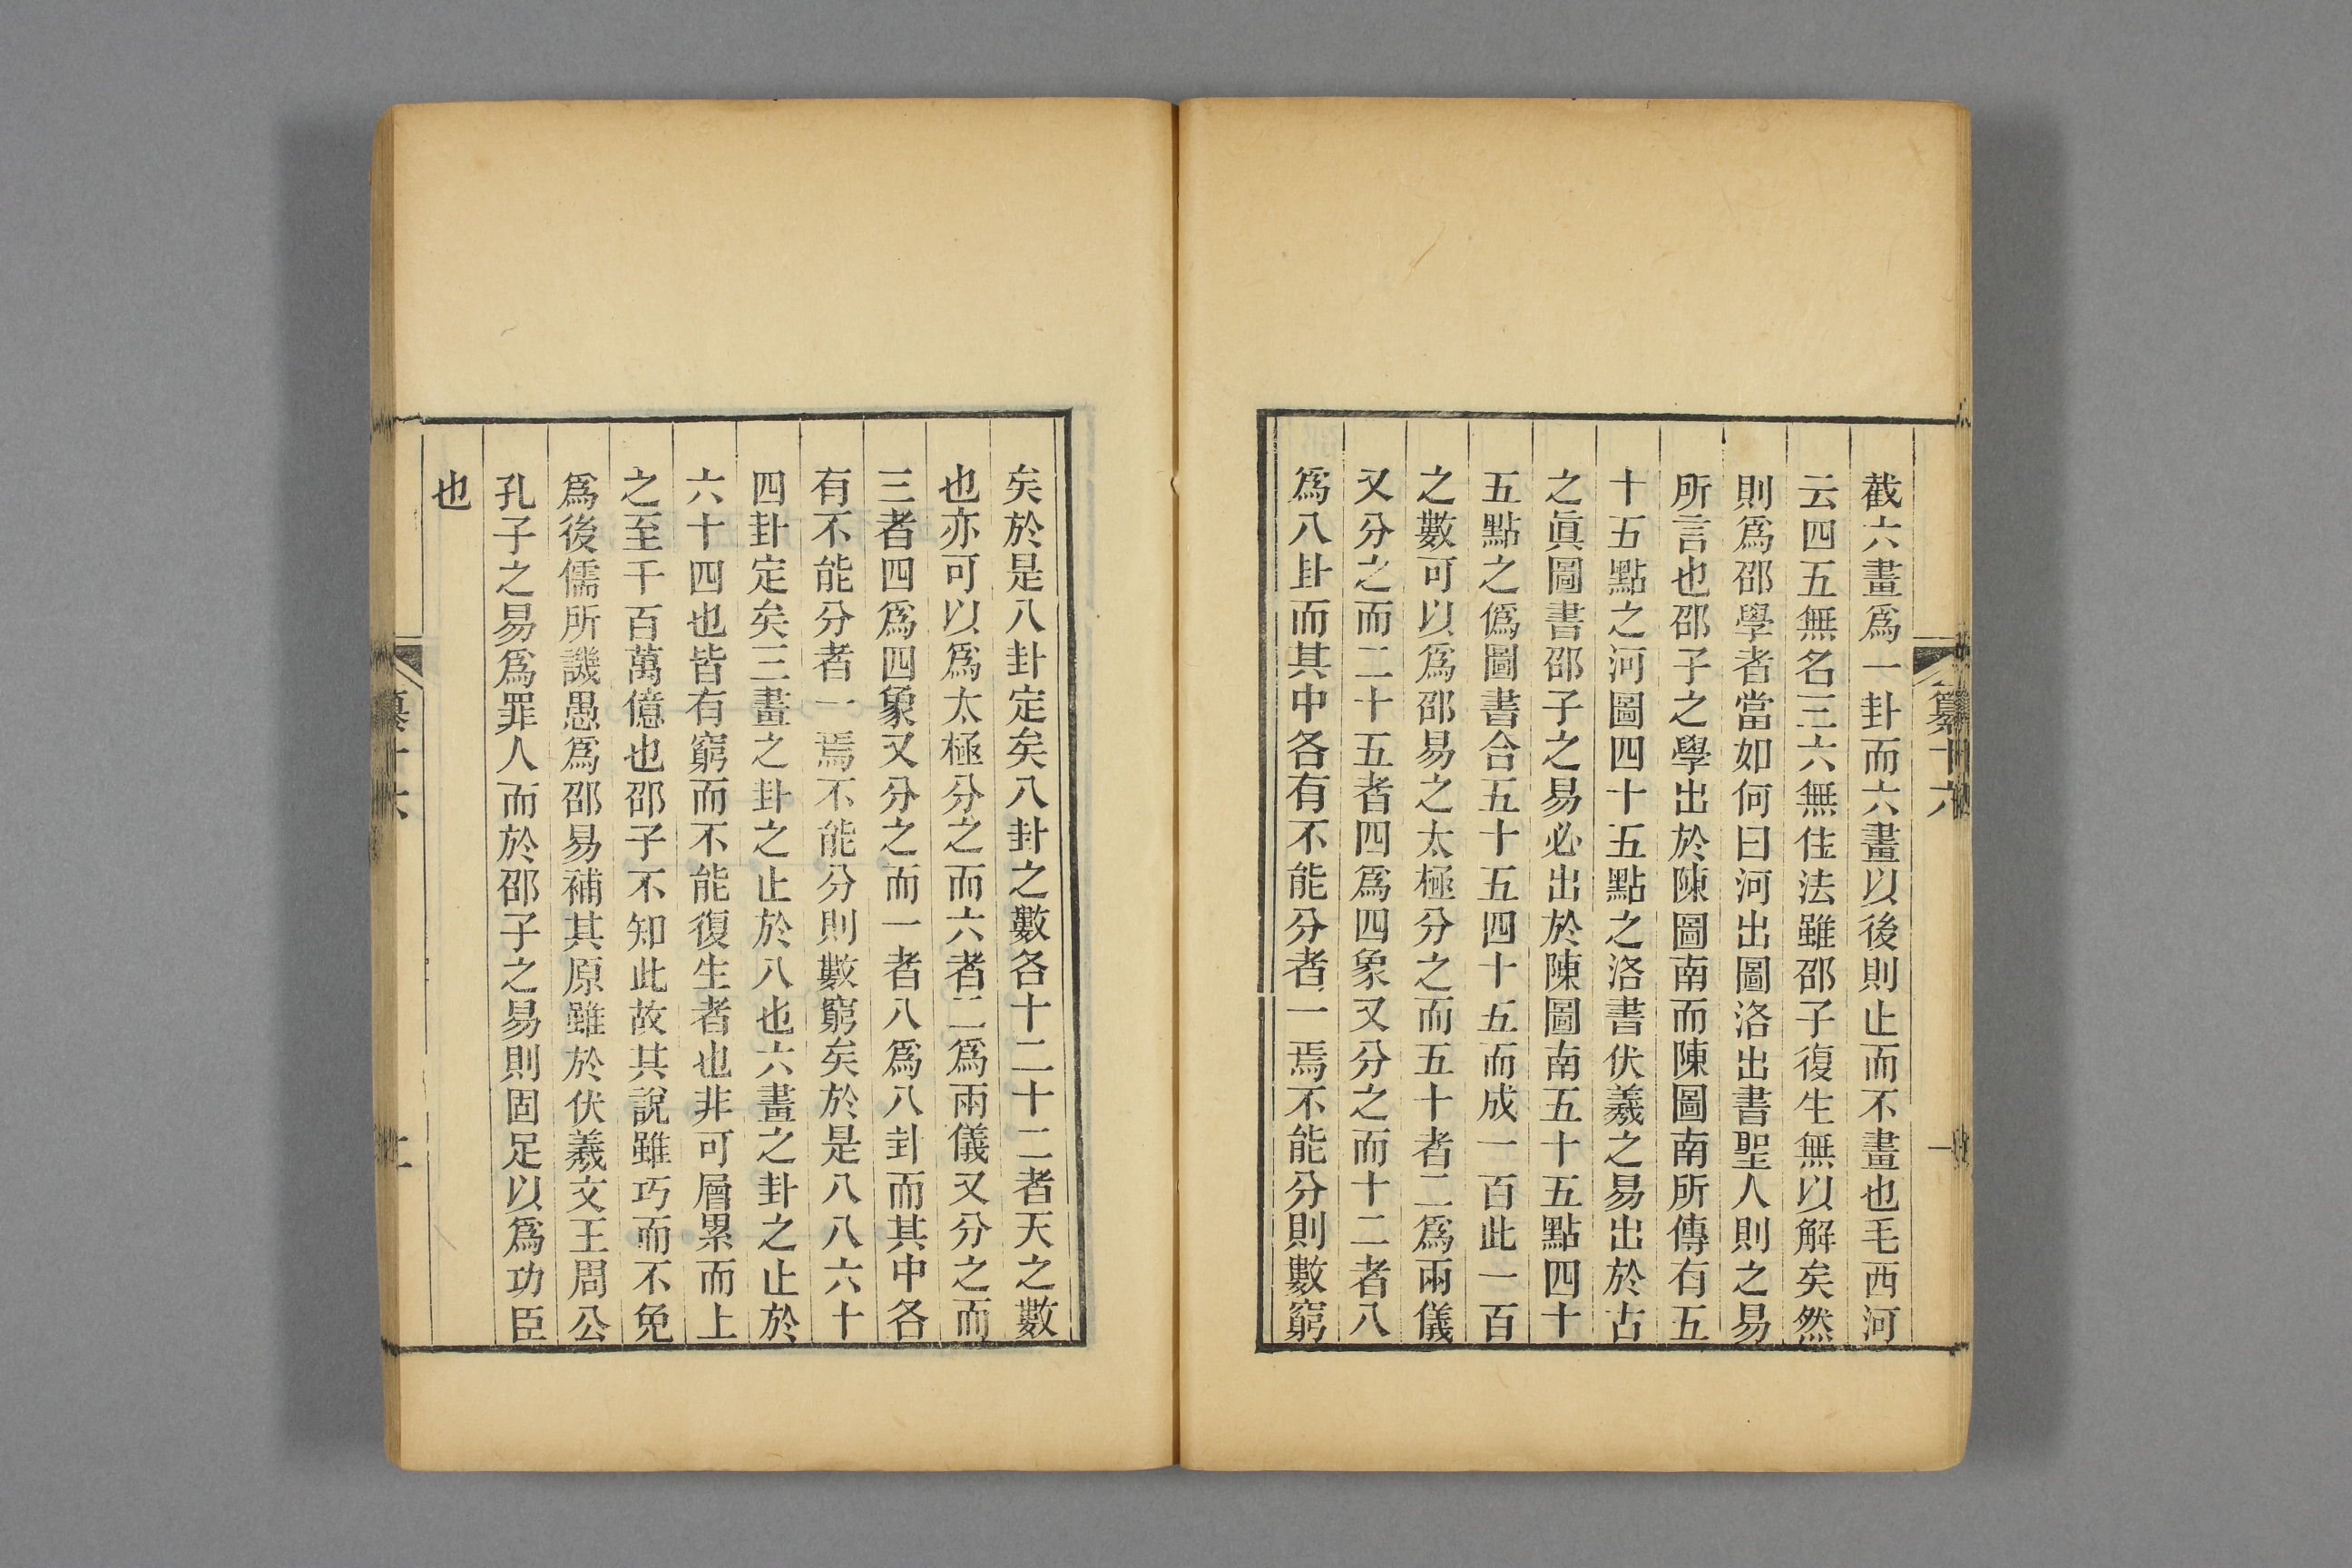 纂十六
截六畫爲一卦而六畫以後則止而不畫也毛西河
云四五無名三六無住法雖邵子復生無以解矣然
則爲邵學者當如何曰河出圖洛出書聖人則之易
所言也邵子之學出於陳圖南而陳圖南所傳有五
十五點之河圖四十五點之洛書伏羲之易出於古
之眞圖書邵子之易必出於陳圖南五十五點四十
五點之僞圖書合五十五四十五而成一百此一百
之數可以爲邵易之太極分之而五十者二爲兩儀
又分之而二十五者四爲四象又分之而十二者八
爲八卦而其中各有不能分者一焉不能分則數窮
矣於是八卦定矣八卦之數各十二十二者天之數
也亦可以爲太極分之而六者二爲兩儀又分之而
三者四爲四象又分之而一者八爲八卦而其中各
有不能分者一焉不能分則數窮矣於是八八六十
四卦定矣三畫之卦之止於八也六畫之卦之止於
六十四也皆有窮而不能復生者也非可層累而上
之至千百萬億也邵子不知此故其說雖巧而不免
爲後儒所譏愚爲邵易補其原雖於伏羲文王周公
孔子之易爲罪人而於邵子之易則固足以爲功臣
也